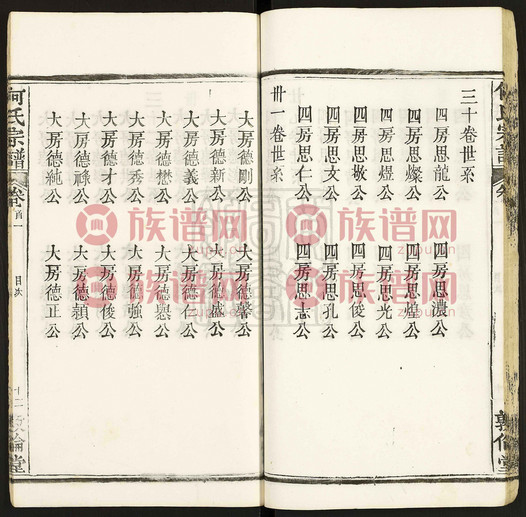 三十卷世系
四房思龍公 四房思濃公
四房思燦公 四房思煌公
四房思煜公 四房思光公
四房思敬公 四房思俊公
四房思文公 四房思孔公
四房思仁公 四房思志公
卅一卷世系
大房德剛公 大房德馨公
大房德新公 大房德盛公
大房德義公 大房德仁公
大房德懋公
大房德秀公 大房德強公
大房德才公 大房德俊公
大房德祿公 大房德穎公
大房德純公 大房德正公
何氏宗譜
卷首一
目次
敦倫堂
族谱网
zupu.cn
族谱网
zupu.cn
族谱网
zupu.cn
族谱网
zupu.cn